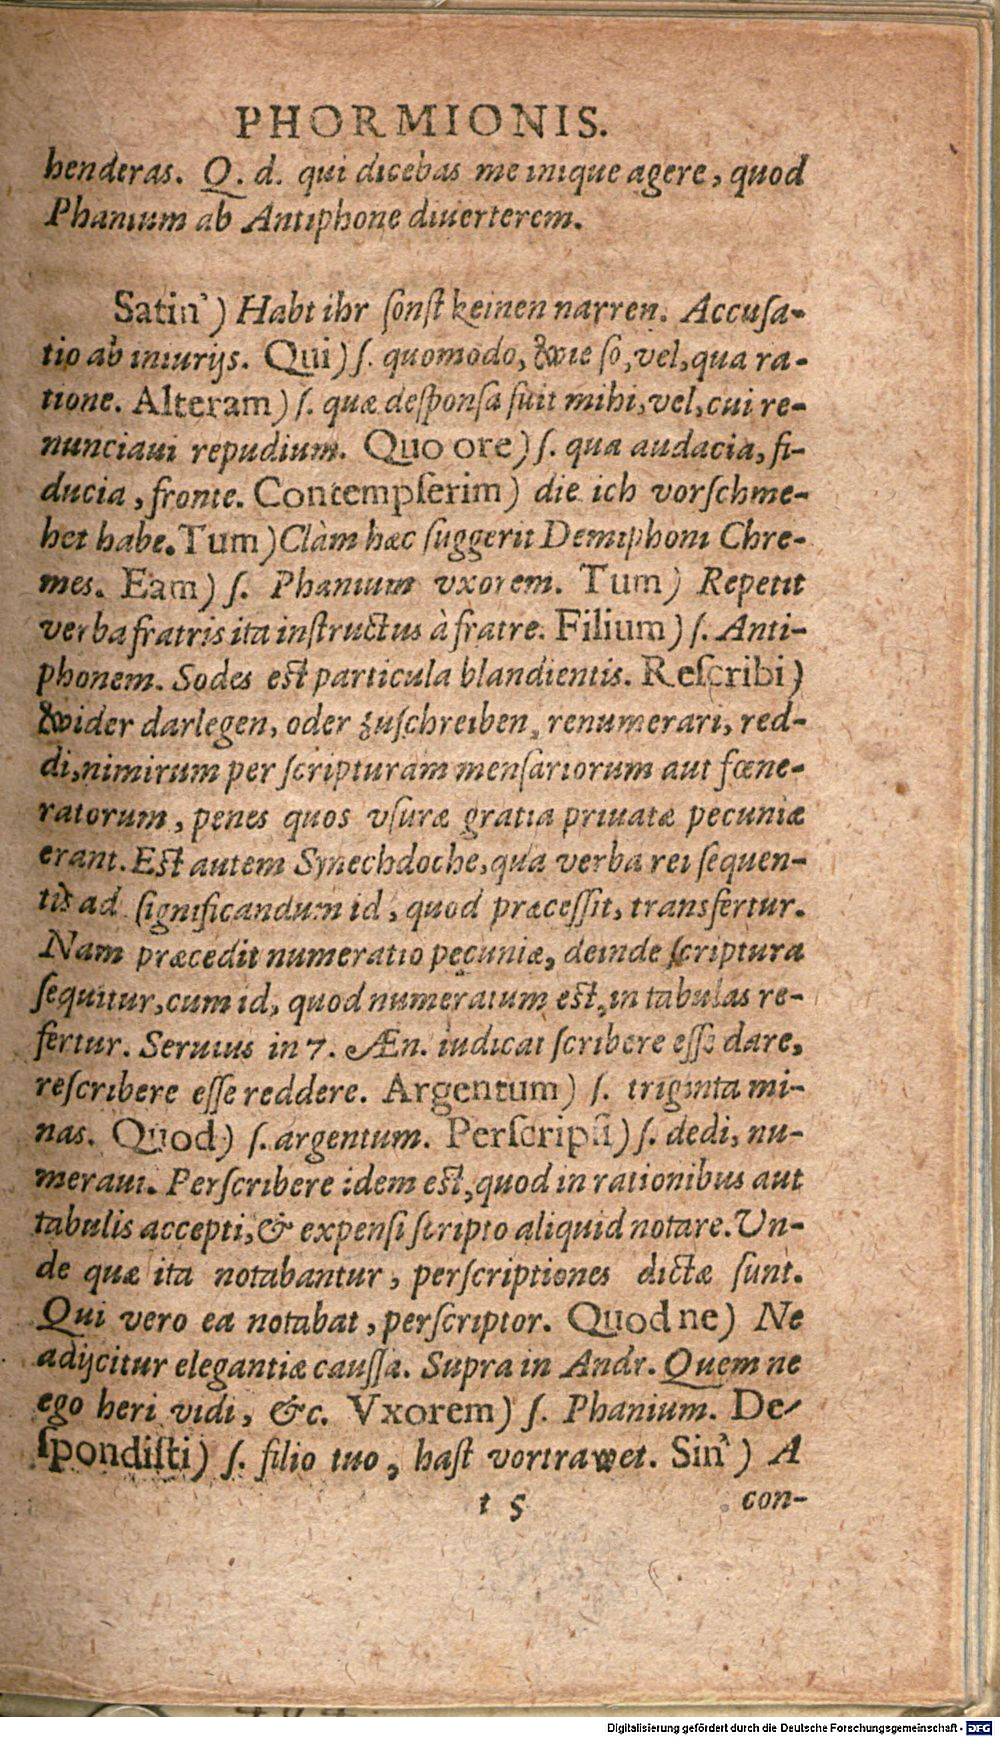 PHORMIONIS.
henderas. Q. d. qui dicebas me inique agere, quod
Phanium ab Antiphone diuerterem.
Satin') Habt ihr ſonſt keinen narren. Accuſa-
tio ab iniurijs. Qui) ſ. quomodo, wie ſo, vel, qua ra-
tione. Alteram) ſ. quæ deſponſa fuit mihi, vel, cui re-
nunciaui repudium. Quo ore) ſ. qua audacia, fi-
ducia, fronte. Contempſerim) die ich vorſchme-
het habe. Tum) Clàm hæc ſuggerit Demiphoni Chre-
mes. Eam) ſ. Phanium vxorem. Tum) Repetit
verba fratris ita inſtructus à fratre. Filium) ſ. Anti-
phonem. Sodes eſt particula blandientis. Reſcribi)
wider darlegen, oder zuſchreiben, renumerari, red-
di, nimirum per ſcripturam menſariorum aut fœne-
ratorum, penes quos vſuræ gratia priuatæ pecuniæ
erant. Eſt autem Synechdoche, qua verba rei ſequen-
tis ad ſignificandum id, quod præceſſit, transfertur.
Nam præcedit numeratio pecuniæ, deinde ſcriptura
ſequitur, cum id, quod numeratum eſt, in tabulas re-
fertur. Seruius in 7. Æn. iudicat ſcribere eſſe dare,
reſcribere eſſe reddere. Argentum) ſ. triginta mi-
nas. Quod) ſ. argentum. Perſcripſi) ſ. dedi, nu-
meraui. Perſcribere idem eſt, quod in rationibus aut
tabulis accepti, & expenſi ſcripto aliquid notare. Vn-
de quæ ita notabantur, perſcriptiones dictæ ſunt.
Qui vero ea notabat, perſcriptor. Quod ne) Ne
adijcitur elegantiæ cauſſa. Supra in Andr. Quem ne
ego heri vidi, &c. Vxorem) ſ. Phanium. De-
ſpondiſti) ſ. filio tuo, haſt vortrawet. Sin') A
t 5 con-
Digitalisierung gefördert durch die Deutsche Forschungsgemeinschaft - DFG